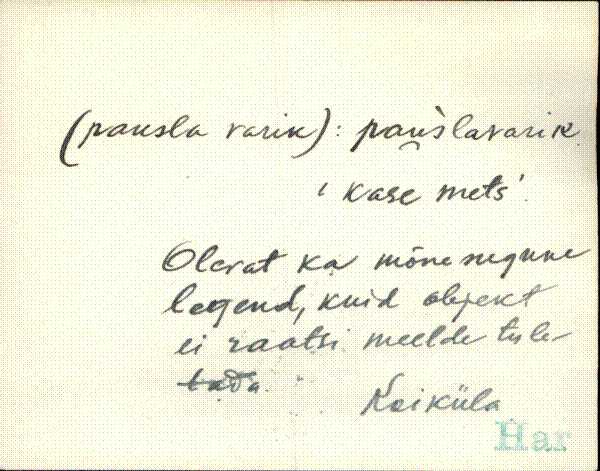 (pausla varik): pau̯s̀lavarik
'kase mets'.
Olevat ka mõnesugune
legend, kuid objekt
ei raatsi meelde tule-
tada.
Koiküla
Har